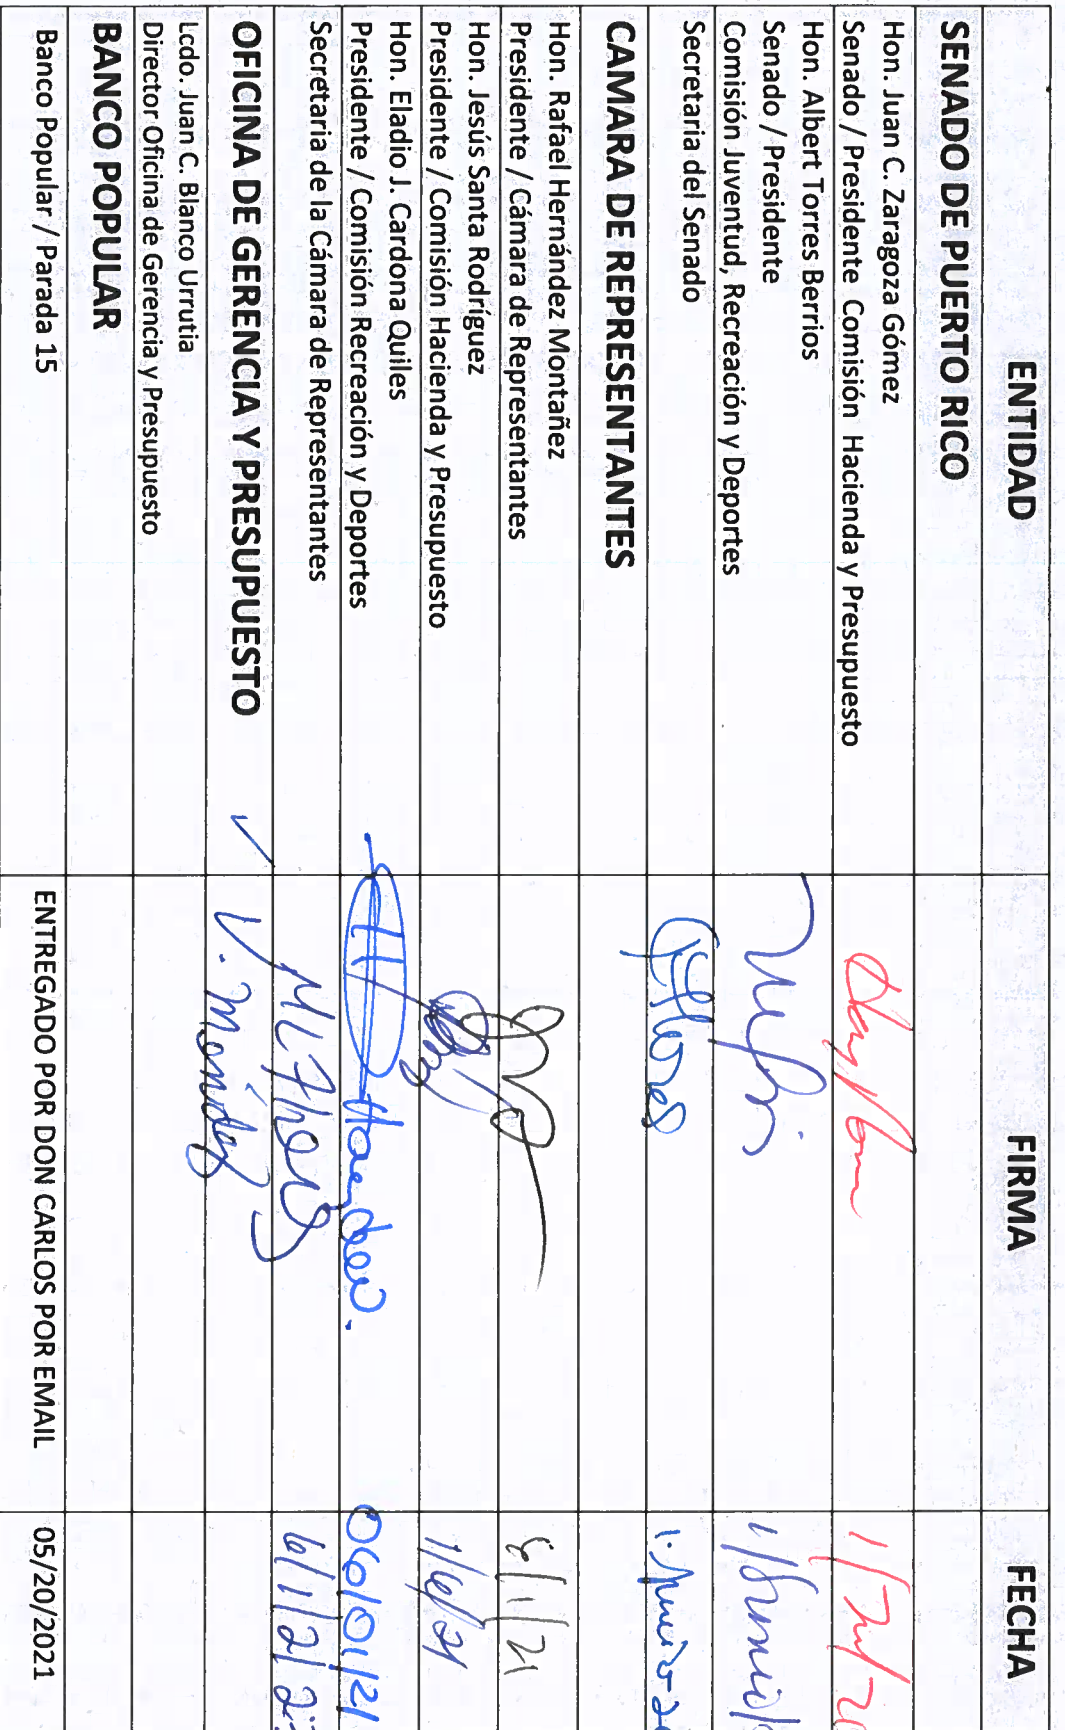 ENTIDAD FIRMA FECHA
SENADO DE PUERTO RICO
Hon. Juan C. Zaragoza Gómez
Senado / Presidente Comisión Hacienda y Presupuesto
Hon. Albert Torres Berrios
Senado / Presidente
Comisión Juventud, Recreación y Deportes
Secretaria del Senado
CAMARA DE REPRESENTANTES
Hon. Rafael Hernández Montañez
Presidente / Cámara de Representantes 6/1/21
Hon. Jesús Santa Rodríguez
Presidente / Comisión Hacienda y Presupuesto 1/6/21
Hon. Eladio J. Cardona Quiles
Presidente / Comisión Recreación y Deportes 06/01/21
Secretaria de la Cámara de Representantes 6/1/21
OFICINA DE GERENCIA Y PRESUPUESTO ✓ V. Méndez
Lcdo. Juan C. Blanco Urrutia
Director Oficina de Gerencia y Presupuesto
BANCO POPULAR
Banco Popular / Parada 15 ENTREGADO POR DON CARLOS POR EMAIL 05/20/2021